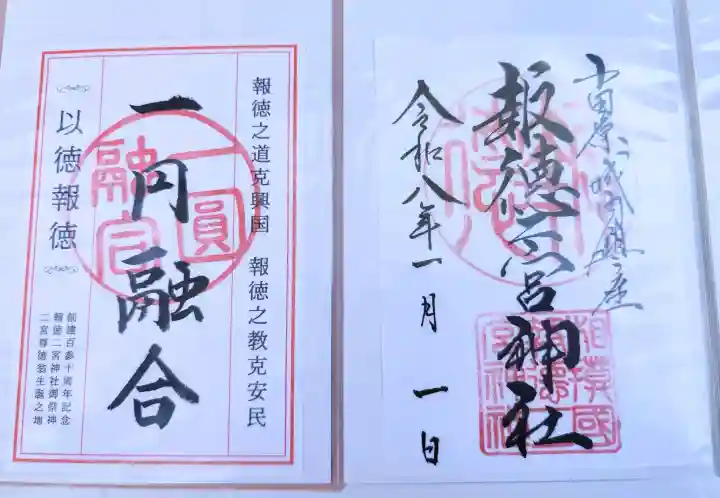 小田原城内鎮座
報徳二宮神社
令和八年一月一日
相模國
報徳之道克興国 報徳之教克安民
一円融合
一圓
融合
以徳報徳
創建百参十周年記念
報徳二宮神社御祭神
二宮尊徳翁生誕之地